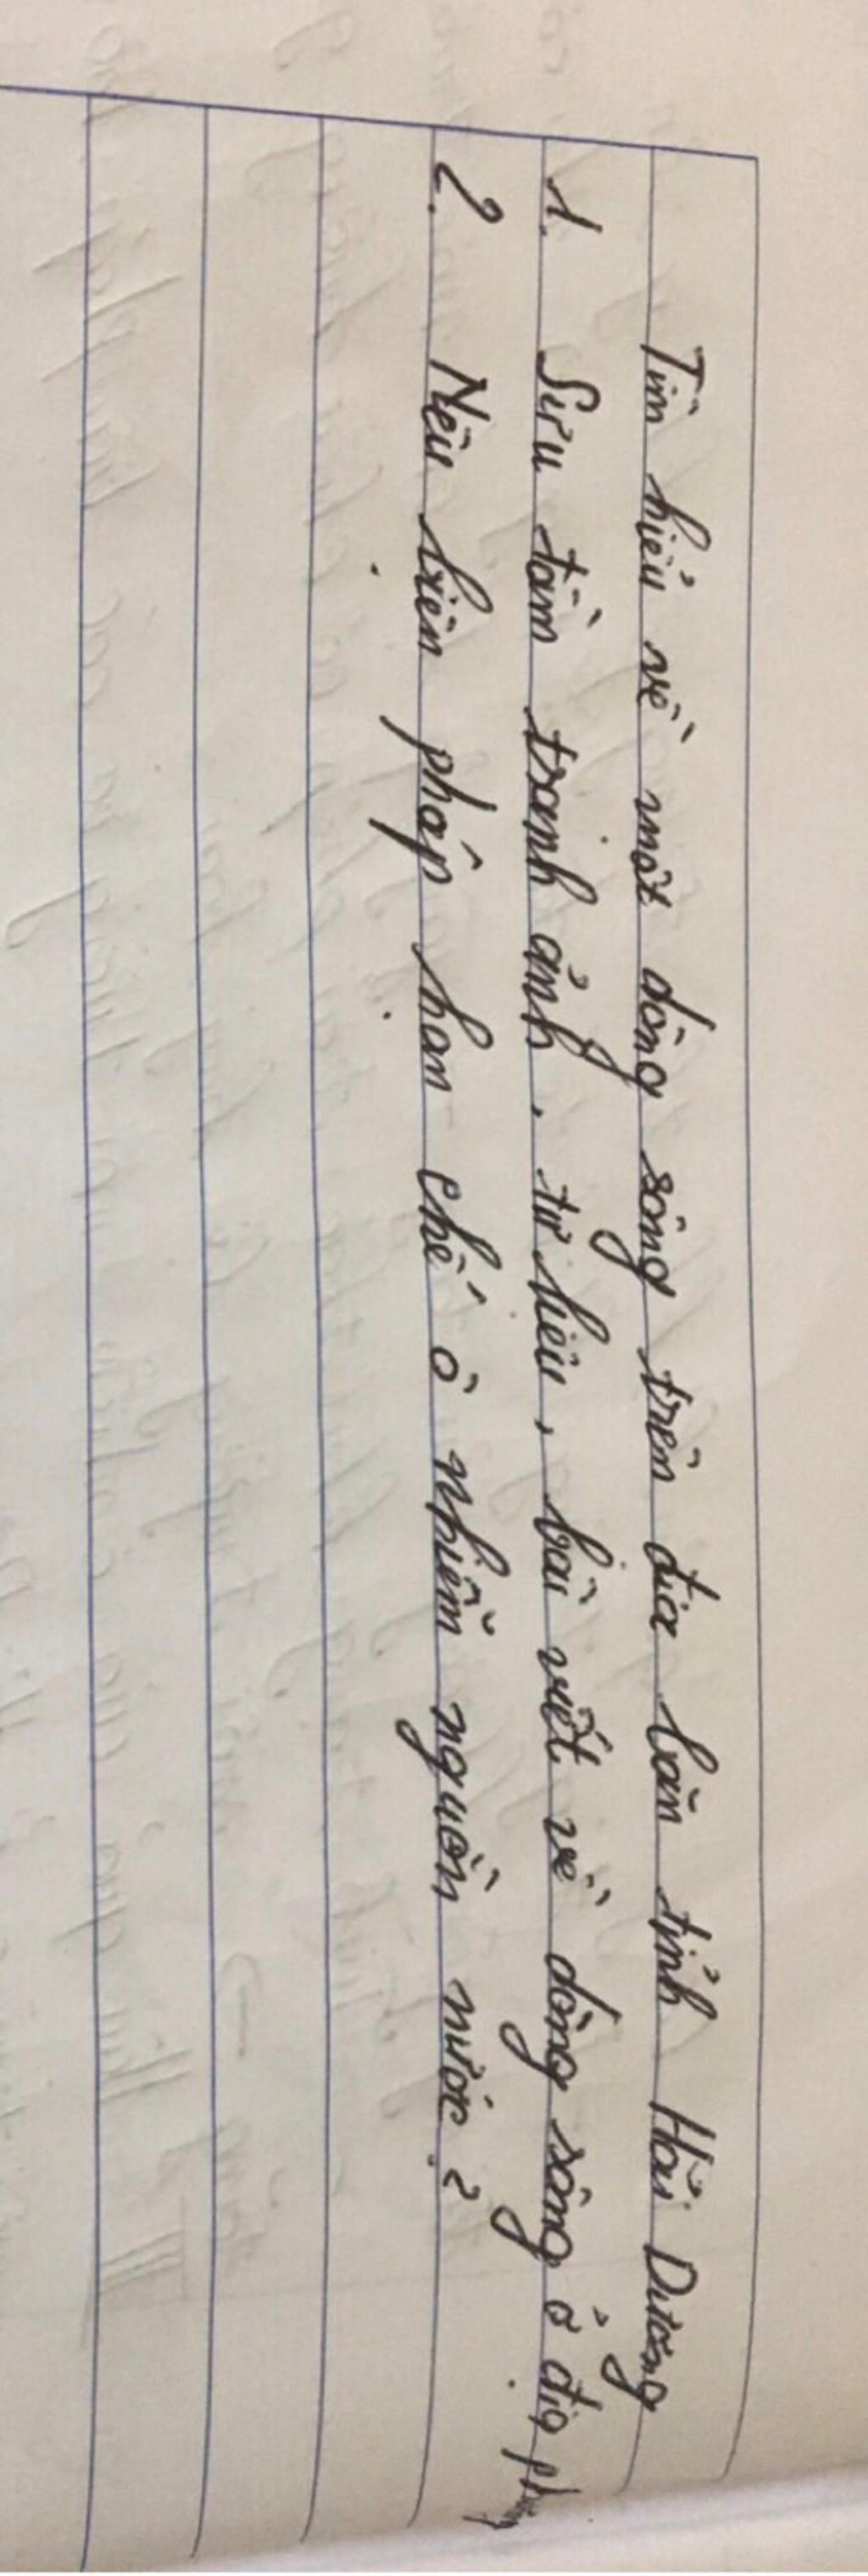 Tìm hiểu về một dòng sông trên địa bàn tỉnh Hải Dương
1. Sưu tầm tranh ảnh, tư liệu, bài viết về dòng sông ở địa ph
2. Nêu biện pháp hạn chế ô nhiễm nguồn nước?